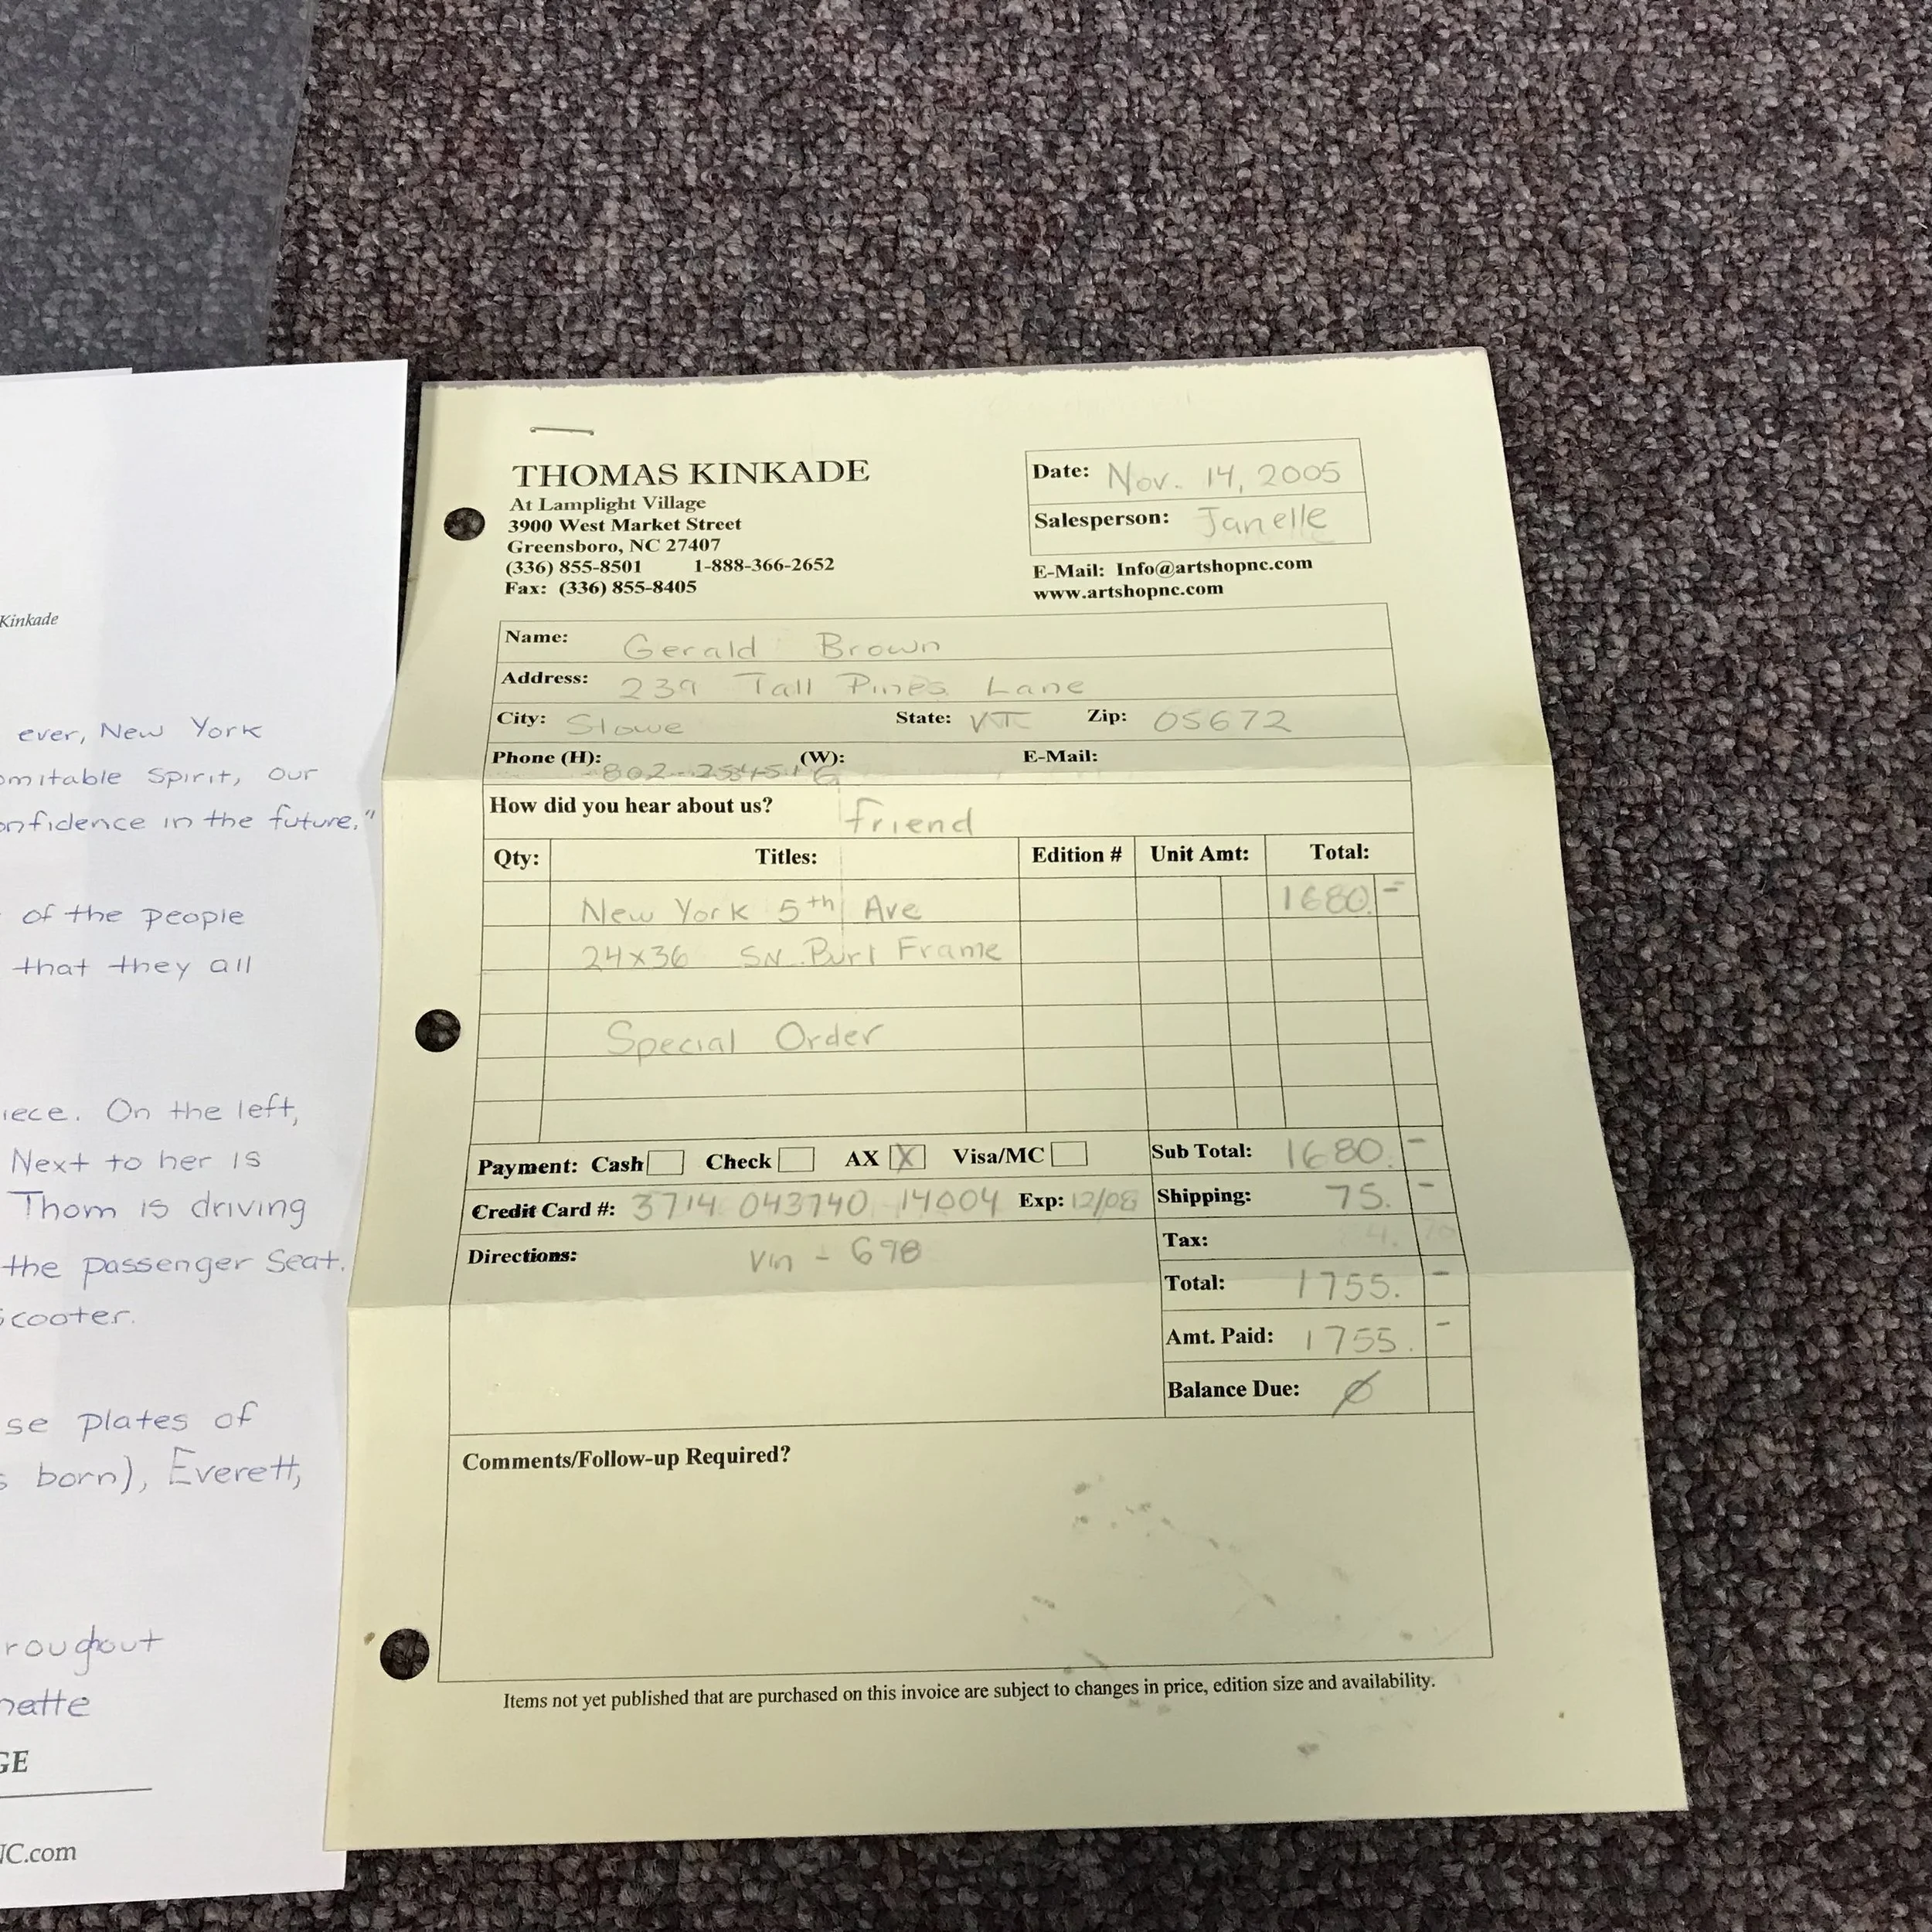 Kinkade
ever, New York
omitable Spirit, our
onfidence in the future."
of the people
that they all
iece. On the left,
Next to her is
Thom is driving
the passenger Seat.
Scooter.
se plates of
s born), Everett,
roughout
nette
GE
NC.com
THOMAS KINKADE
At Lamplight Village
3900 West Market Street
Greensboro, NC 27407
(336) 855-8501 1-888-366-2652
Fax: (336) 855-8405
Date: Nov. 14, 2005
Salesperson: Janelle
E-Mail: Info@artshopnc.com
www.artshopnc.com
Name: Gerald Brown
Address: 239 Tall Pines Lane
City: Stowe State: VT Zip: 05672
Phone (H): (W): E-Mail:
How did you hear about us? friend
Qty: Titles: Edition # Unit Amt: Total:
New York 5th Ave 1680. -
24x36 SN Burl Frame
Special Order
Payment: Cash Check AX X Visa/MC Sub Total: 1680. -
Credit Card #: 3714 043740 14004 Exp: 12/08 Shipping: 75. -
Directions: Vin - 698 Tax:
Total: 1755. -
Amt. Paid: 1755. -
Balance Due: Ø
Comments/Follow-up Required?
Items not yet published that are purchased on this invoice are subject to changes in price, edition size and availability.